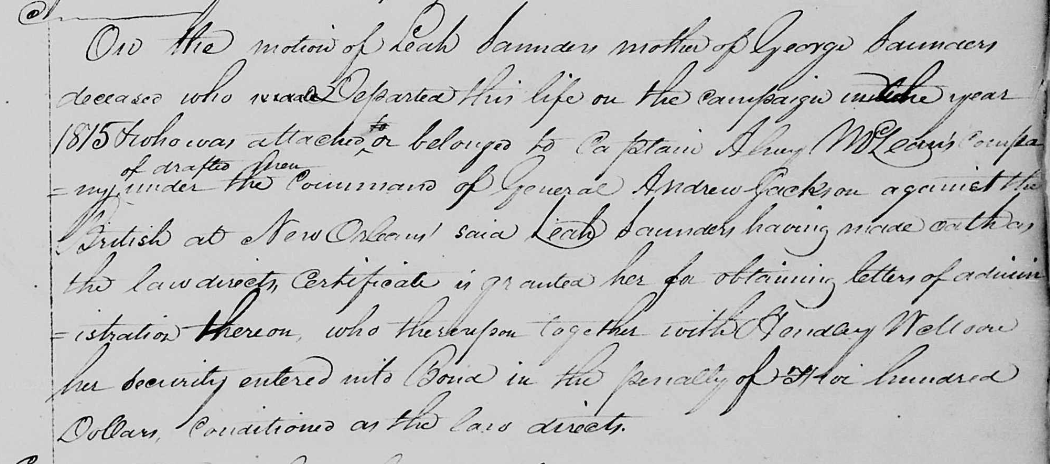 On the motion of Leah Saunders mother of George Saunders
deceased who made Departed this life on the campaign in the year
1815 & who was attached to or belonged to Captain Alney McLean's Compa
of drafted men
=ny, under the Command of General Andrew Jackson against the
British at New Orleans' said Leah Saunders having made oath as
the law directs, Certificate is granted her for obtaining letters of admin
=istration thereon, who thereupon together with Hendley W Moore
her security entered into Bond in the penalty of hundred
Dollars, Conditioned as the law directs.